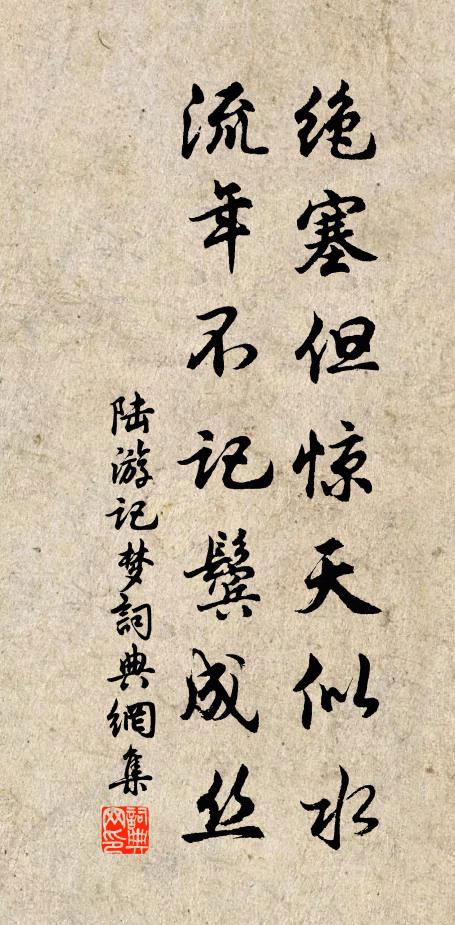 绝塞但惊天似水
流年不记鬓成丝
陆游记梦詞典網集
詞典网印